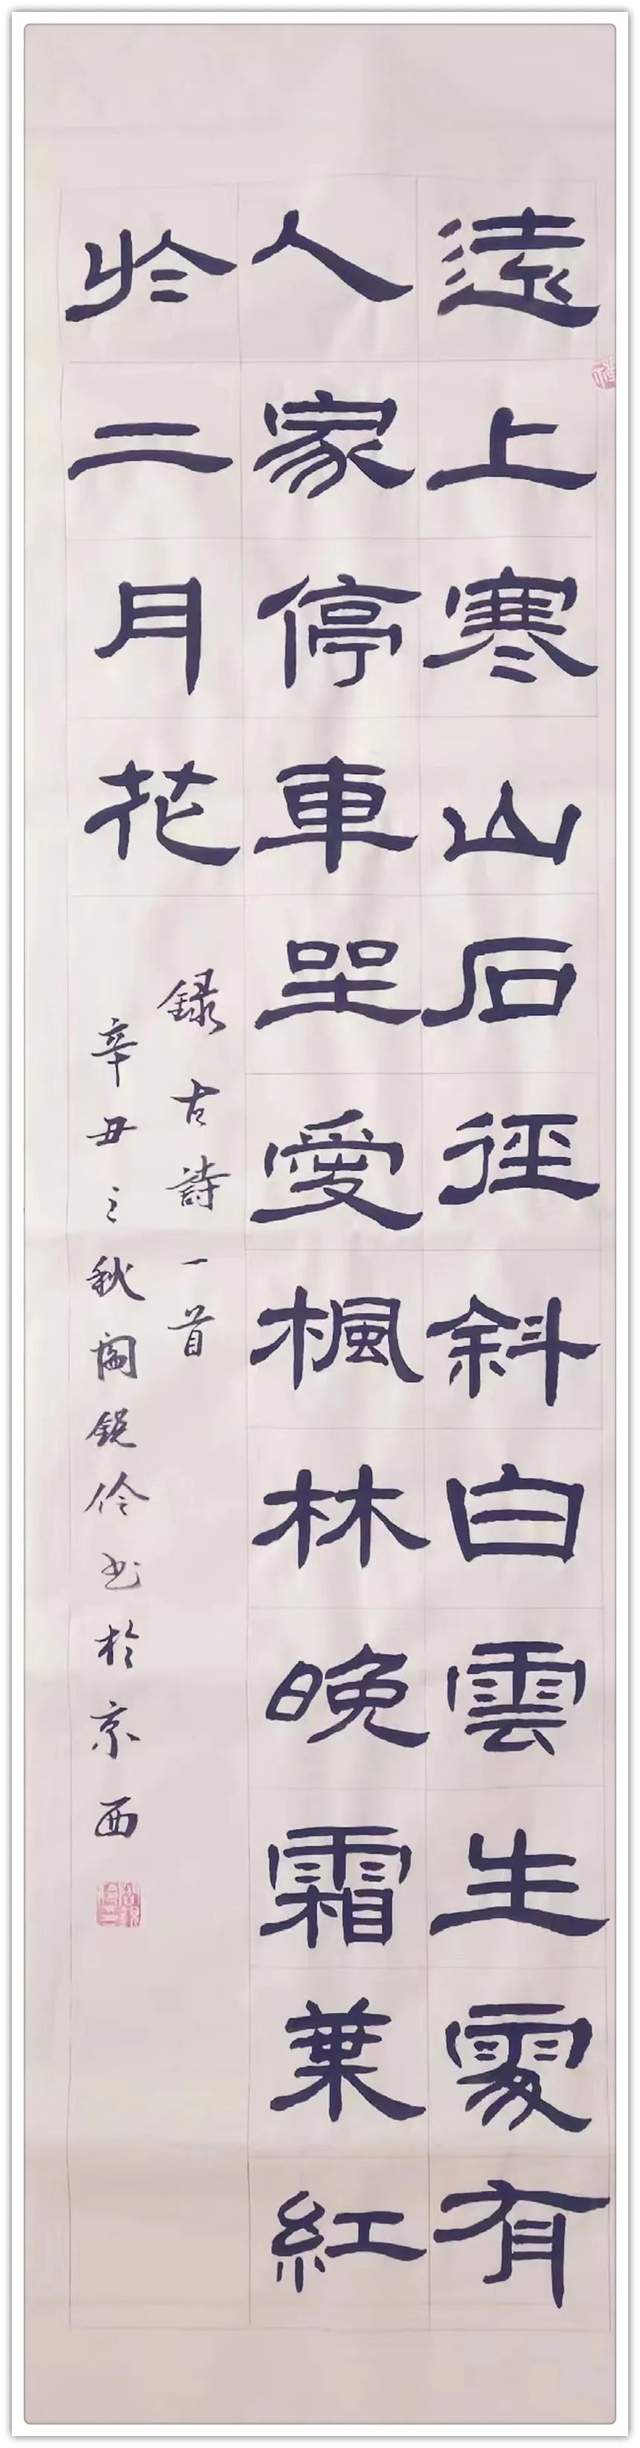 遠上寒山石徑斜白雲生處有
人家停車坐愛楓林晚霜葉紅
於二月花
録古詩一首
辛丑之秋閻銳伶书於京西